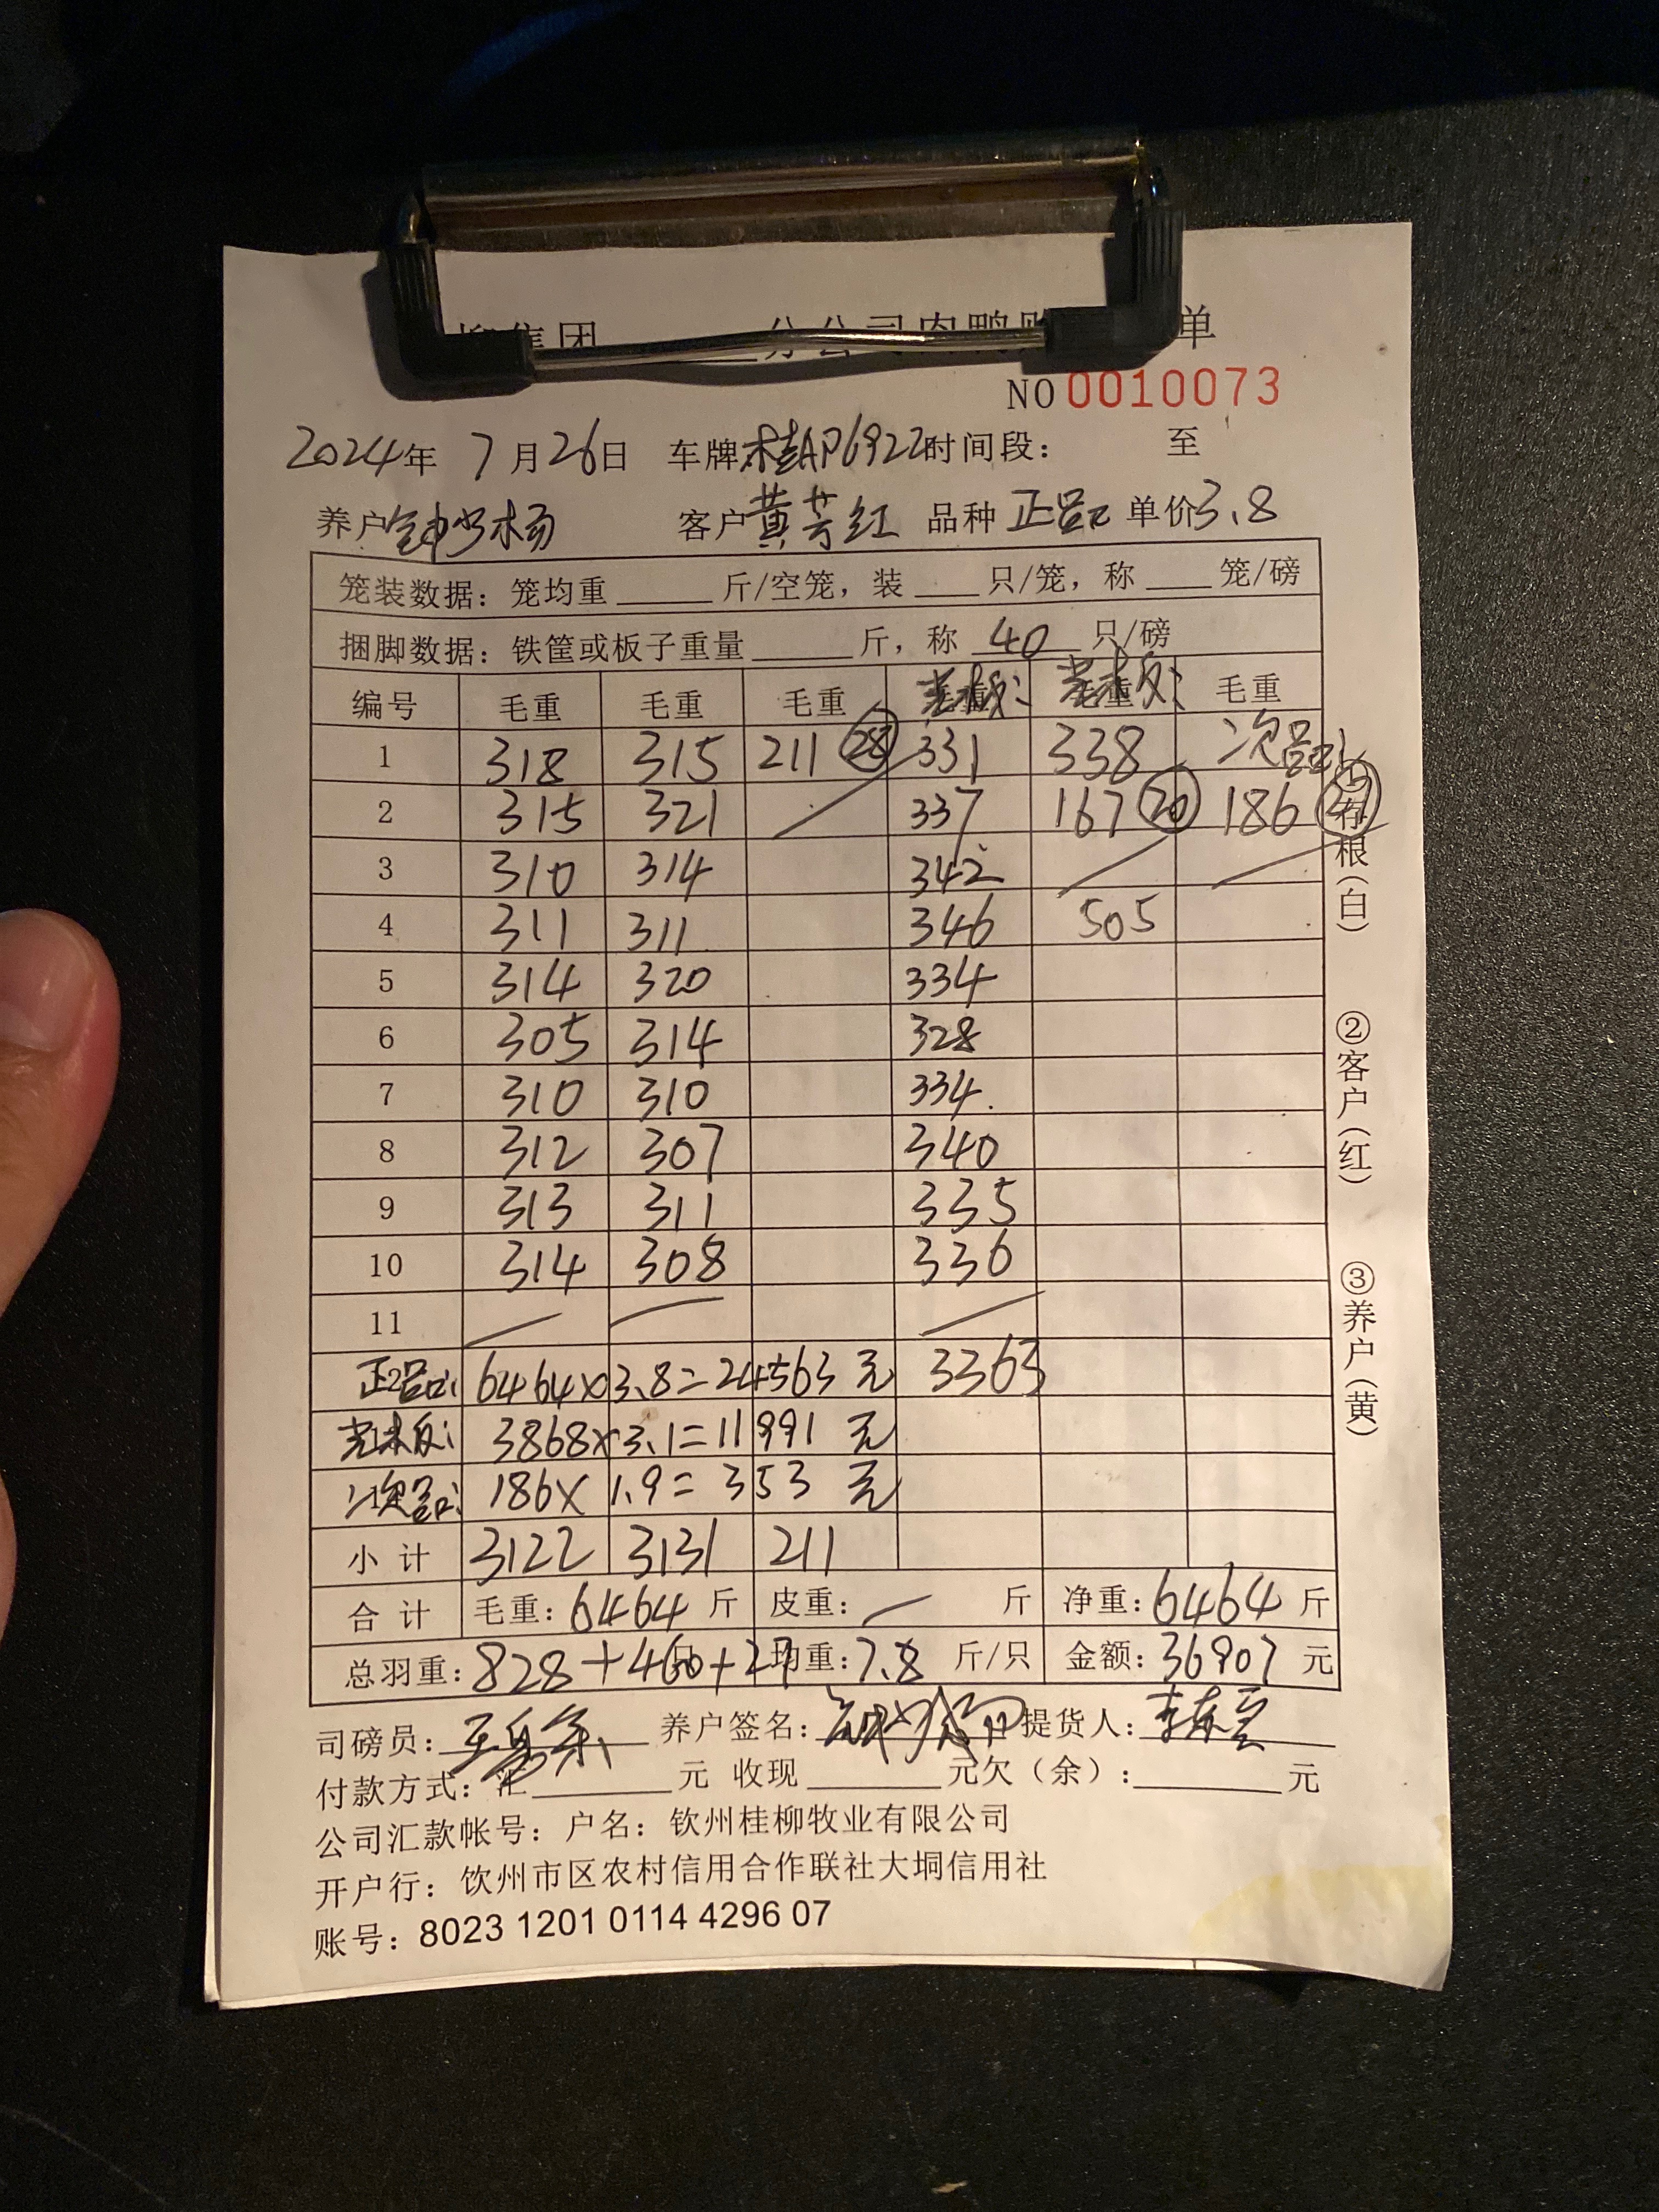 集团 分公司肉鸭 单
NO 0010073
2024年 7月26日 车牌 桂AP6922 时间段： 至
养户 客户 黄芳红 品种 正品 单价3.8
笼装数据：笼均重 斤/空笼，装 只/笼，称 笼/磅
捆脚数据：铁筐或板子重量 斤，称 40 只/磅
编号 毛重 毛重 毛重 毛重 毛重 毛重
1 318 315 211 28 331 338 次品
2 315 321 337 167 20 186
3 310 314 342
4 311 311 346 505
5 314 320 334
6 305 314 328
7 310 310 334
8 312 307 340
9 313 311 335
10 314 308 336
11
正品： 6464×3.8=24563 元 3363
3868×3.1=11991 元
次品： 186×1.9=353 元
小计 3122 3131 211
合计 毛重：6464 斤 皮重： 斤 净重：6464 斤
总羽重：828+460+27 均重：7.8 斤/只 金额：36907 元
司磅员： 养户签名： 提货人：
付款方式：汇 元 收现 元欠（余）： 元
公司汇款帐号：户名：钦州桂柳牧业有限公司
开户行：钦州市区农村信用合作联社大垌信用社
账号：8023 1201 0114 4296 07
①存根（白）
②客户（红）
③养户（黄）